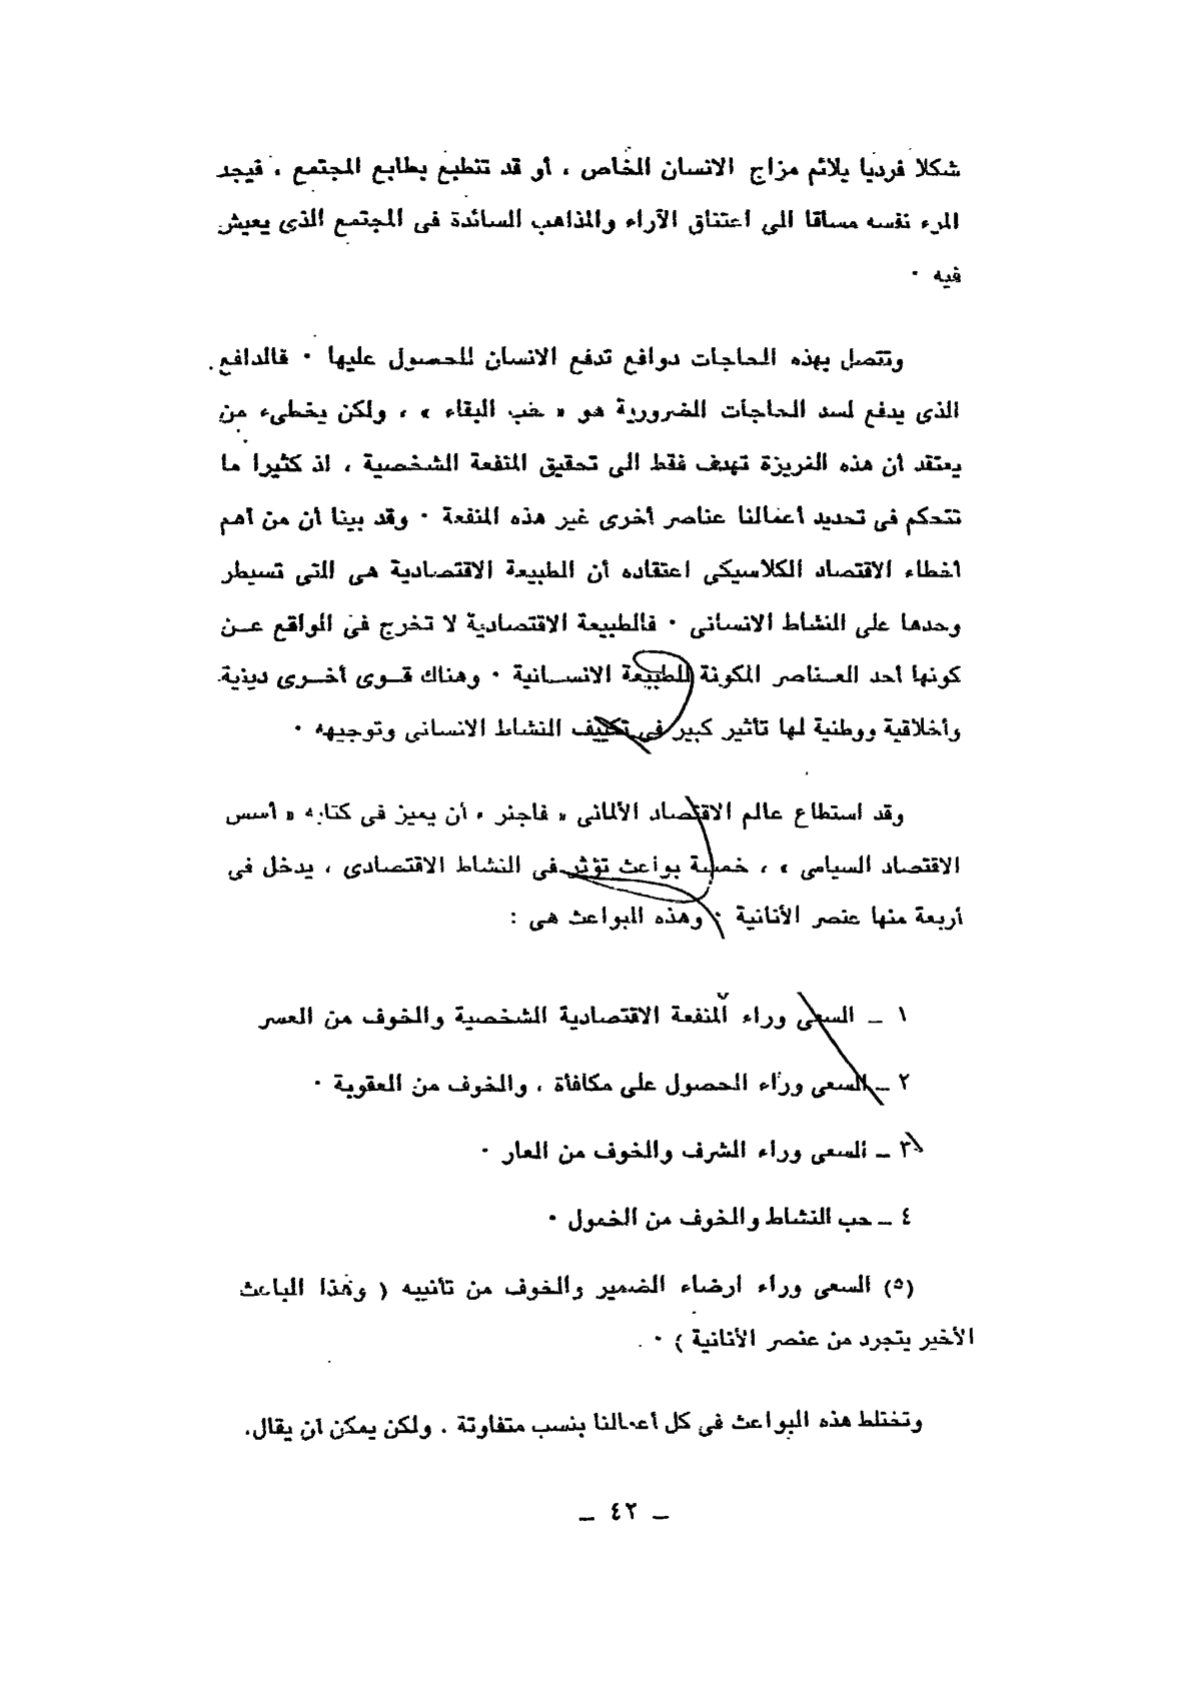 شكلا فرديا يلائم مزاج الانسان الخاص ، أو قد تنطبع بطابع المجتمع ، فيجد
المرء نفسه مساقا الى اعتناق الآراء والمذاهب السائدة فى المجتمع الذى يعيش
فيه ٠
وتتصل بهذه الحاجات دوافع تدفع الانسان للحصول عليها ٠ فالدافع
الذى يدفع لسد الحاجات الضرورية هو « حب البقاء » ، ولكن يخطىء من
يعتقد أن هذه الغريزة تهدف فقط الى تحقيق المنفعة الشخصية ، اذ كثيرا ما
تتحكم فى تحديد أعمالنا عناصر أخرى غير هذه المنفعة ٠ وقد بينا أن من أهم
أخطاء الاقتصاد الكلاسيكى اعتقاده أن الطبيعة الاقتصادية هى التى تسيطر
وحدها على النشاط الانسانى ٠ فالطبيعة الاقتصادية لا تخرج فى الواقع عن
كونها أحد العناصر المكونة للطبيعة الانسانية ٠ وهناك قوى أخرى دينية
وأخلاقية ووطنية لها تأثير كبير فى تكييف النشاط الانسانى وتوجيهه ٠
وقد استطاع عالم الاقتصاد الألمانى « فاجنر » أن يميز فى كتابه « أسس
الاقتصاد السياسى » ، خمسة بواعث تؤثر فى النشاط الاقتصادى ، يدخل فى
أربعة منها عنصر الأنانية ٠ وهذه البواعث هى :
١ – السعى وراء المنفعة الاقتصادية الشخصية والخوف من العسر
٢ – السعى وراء الحصول على مكافأة ، والخوف من العقوبة ٠
٣ – السعى وراء الشرف والخوف من العار ٠
٤ – حب النشاط والخوف من الخمول ٠
(٥) السعى وراء ارضاء الضمير والخوف من تأنيبه ( وهذا الباعث
الأخير يتجرد من عنصر الأنانية ) ٠
وتختلط هذه البواعث فى كل أعمالنا بنسب متفاوتة . ولكن يمكن أن يقال.
– ٤٢ –